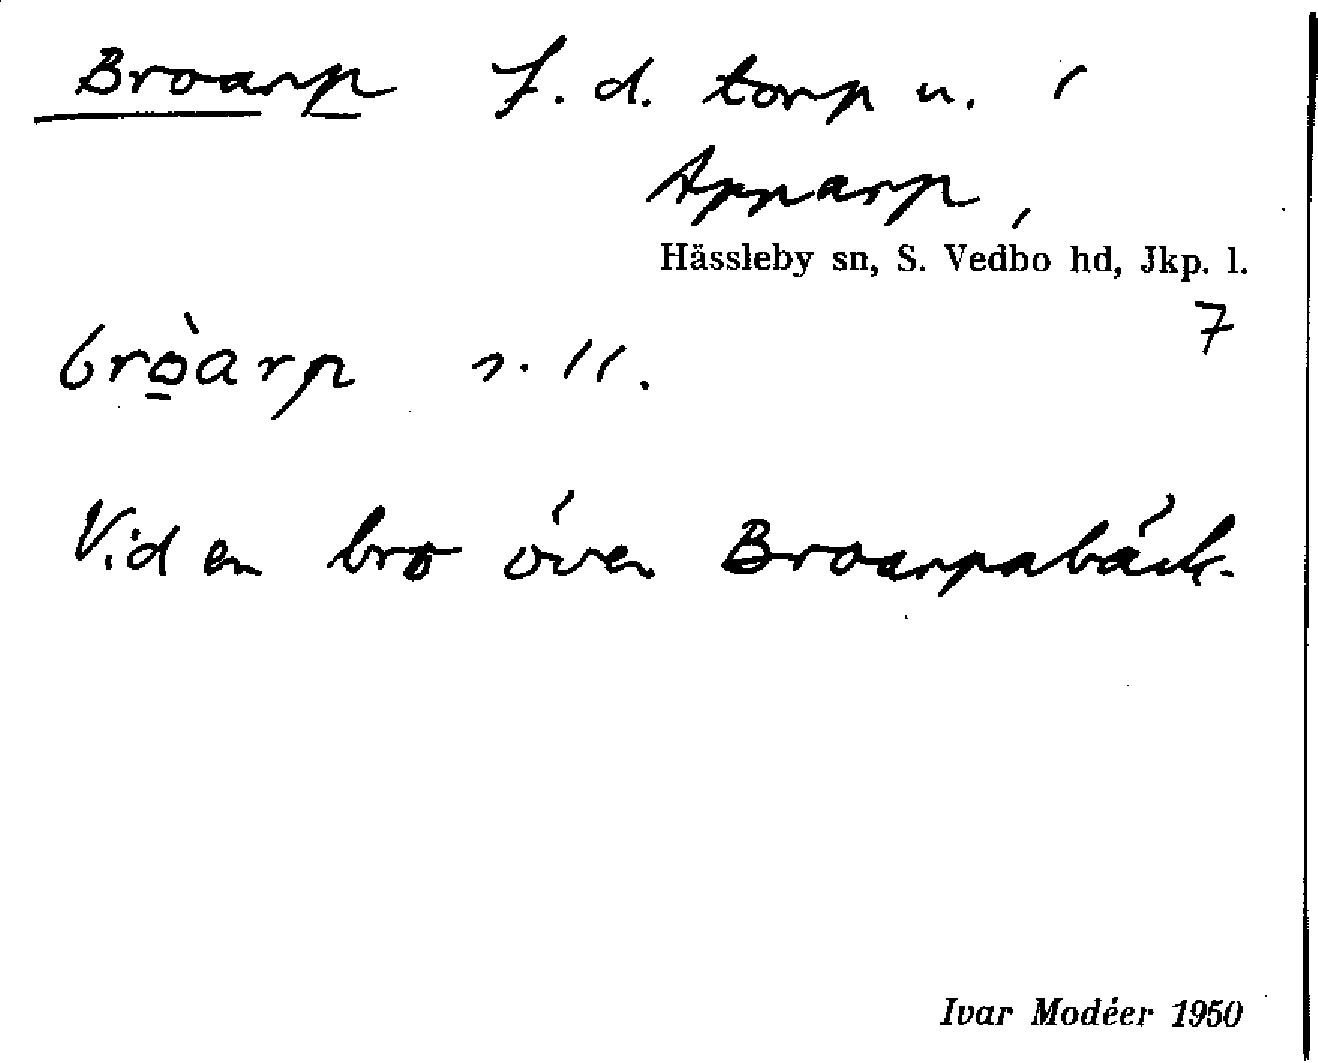 Broarp f.d. torp u.
Apparp,
Hässleby sn, S. Vedbo hd, Jkp. l.
7
bròarp n. 11.
Vid en bro över Broarpabäck.
Ivar Modéer 1950